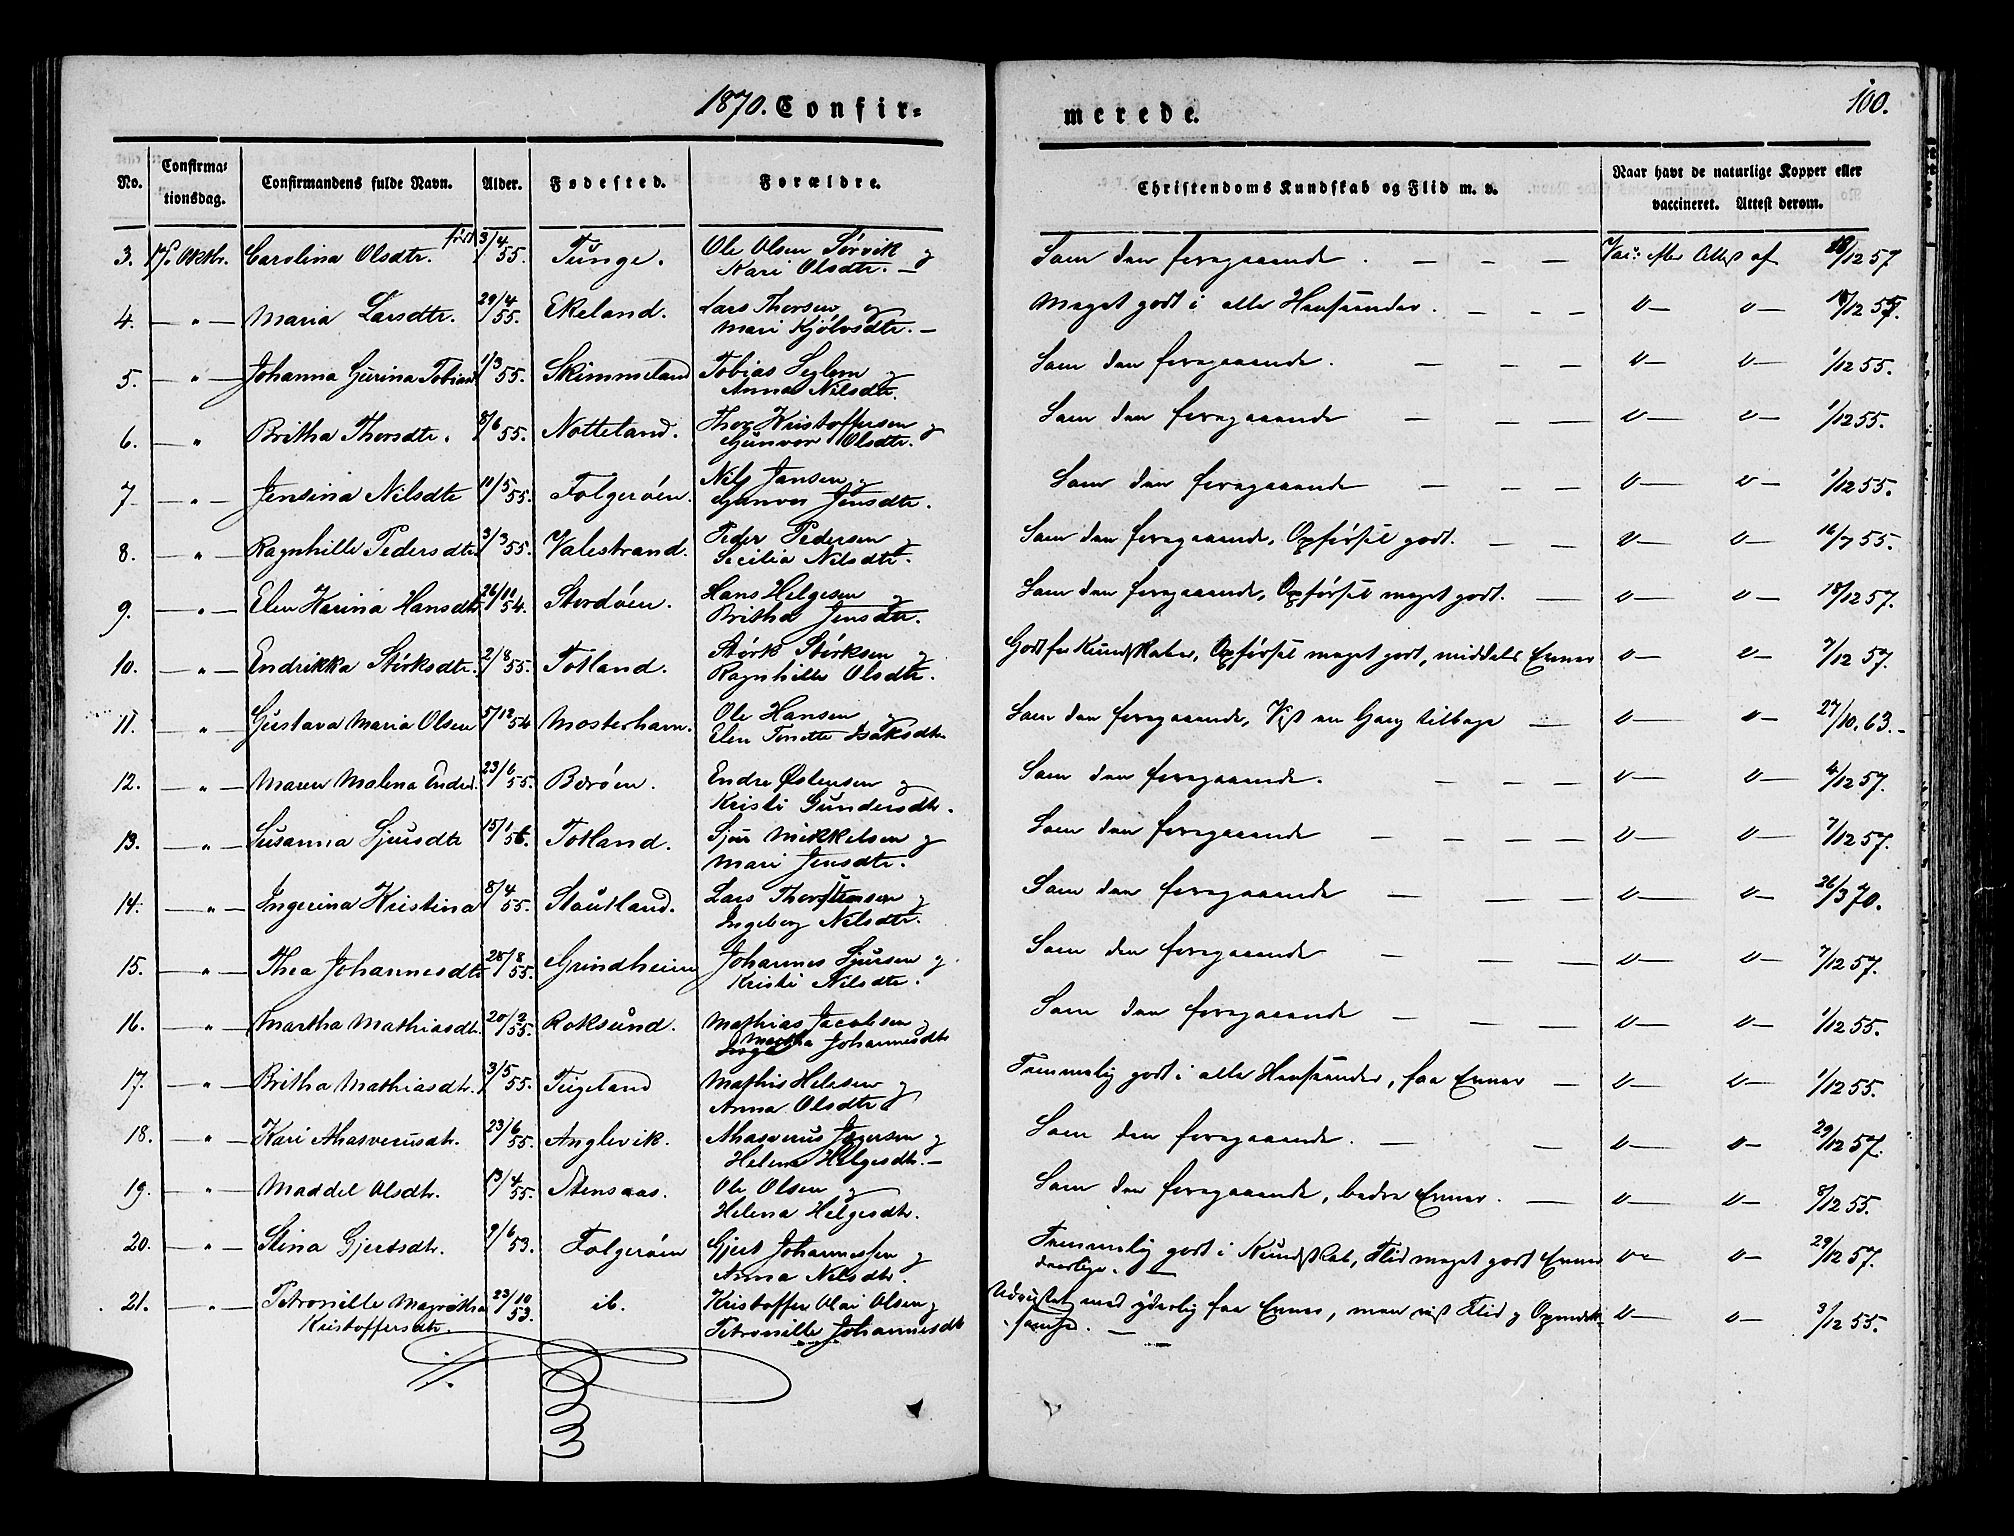 1870. Confir=
merede.
100.
No. Confirma=tionsdag. Confirmandens fulde Navn. Alder. Fødested. Forældre. Christendoms Kundskab og Flid m. v. Naar havt de naturlige Kopper eller vaccineret. Attest derom.
3. Oktbr. Carolina Olsdtr. født 3/4 55. Tunge. Ole Olsen Sørvik og Kari Olsdtr. — Som den foregaaende. — — — Vac: efter Attest af /12 57
4. — " — Maria Larsdtr. 29/4 55. Ekeland. Lars Thorsen og Mari Kjölvsdtr. — Meget godt i alle Henseender. — — — " — " — /12 57.
5. — " — Johanna Gurina Tobiasd 1/3 55. Skimmeland Tobias Seglem og Anna Nilsdtr. Som den foregaaende. — — — " — " — 1/12 55.
6. — " Britha Thorsdtr. 8/6 55. Notteland. Thor Kristoffersen og Gunvor Olsdtr. Som den foregaaende — — — " — " — 1/12 55.
7 — " — Jensina Nilsdtr 11/5 55. Folgerøen. Nils Jansen og Gunvor Jensdtr. Som den foregaaende — — — " — " — 1/12 55.
8. — " Ragnhille Pedersdtr 3/3 55. Valestrand. Peder Pedersen og Secilia Nilsdtr. Som den foregaaende, Opførsel godt. — — " — " — 16/7 55.
9. — " — Elen Karina Hansdtr 26/11 54. Stordøen. Hans Helgesen og Britha Jensdtr. Som den foregaaende, Opførsel meget godt. — " — " — 18/12 57.
10. — " Endrikka Störksdtr. 2/8 55. Totland. Störk Störksen og Ragnhille Olsdtr. Godt for Kundskaber, Opførsel meget godt, middels Evner " — " — 7/12 57.
11. — " Gustava Maria Olsen 5/12 54 Mosterhavn. Ole Hansen og Elen Tonette Isaksdtr. Som den foregaaende, Vist en Gang tilbage — " — " — 27/10. 63. —
12. — " — Maren Malena Endresd 23/6 55. Børøen. Endre Østensen og Kristi Gundersdtr. Som den foregaaende. — — — " — " — /12 57.
13. — " — Susanna Sjursdtr 15/1 56. Totland. Sjur Mikkelsen og Mari Jensdtr. Som den foregaaende — — — — " — " — 7/12 57.
14. — " — Ingerina Kristina 8/4 55. Stautland. Lars Thorstensen og Ingeborg Nilsdtr. Som den foregaaende — — — " — " — 26/3 70.
15. — " Thea Johannesdtr 28/8 55. Grindheim Johannes Sjursen og Kristi Nilsdtr. Som den foregaaende — — — " — " — 7/12 57.
16. — " Martha Mathiasdtr. 20/2 55. Roksund. Mathias Jacobsen og Martha Johannesdtr Som den foregaaende — — — " — " — 1/12 55.
17. — " Britha Mathiasdtr. 3/5 55. Tugeland Mathis Helesen og Anna Olsdtr. Temmelig godt i alle Henseender, faa Evner — " — " — 1/12 55.
18. — " Kari Ahasverusdtr. 23/6 55. Anglevik. Ahasverus Jegersen og Helena Helgesdtr. — Som den foregaaende. — — " — " — 29/12 57.
19. — " — Maddel Olsdtr. 13/4 55. Stensaas. Ole Olsen og Helena Helgesdtr. Som den foregaaende, bedre Evner. — " — " — 8/12 55.
20. — " — Stina Gjertsdtr. 9/6 53. Folgerøen Gjert Johannessen og Anna Nilsdtr. Temmelig godt i Kundskab, Flid meget godt Evner daarlige. — " — " — 29/12 57.
21. — " — Petronille Magretha Kristoffersdtr. 23/10 53. ib. Kristoffer Olai Olsen og Petronille Johannesdtr Udrustet med yderlig faa Evner, men vist Flid og Opmærk=somhed. — " — " — 3/12 55.